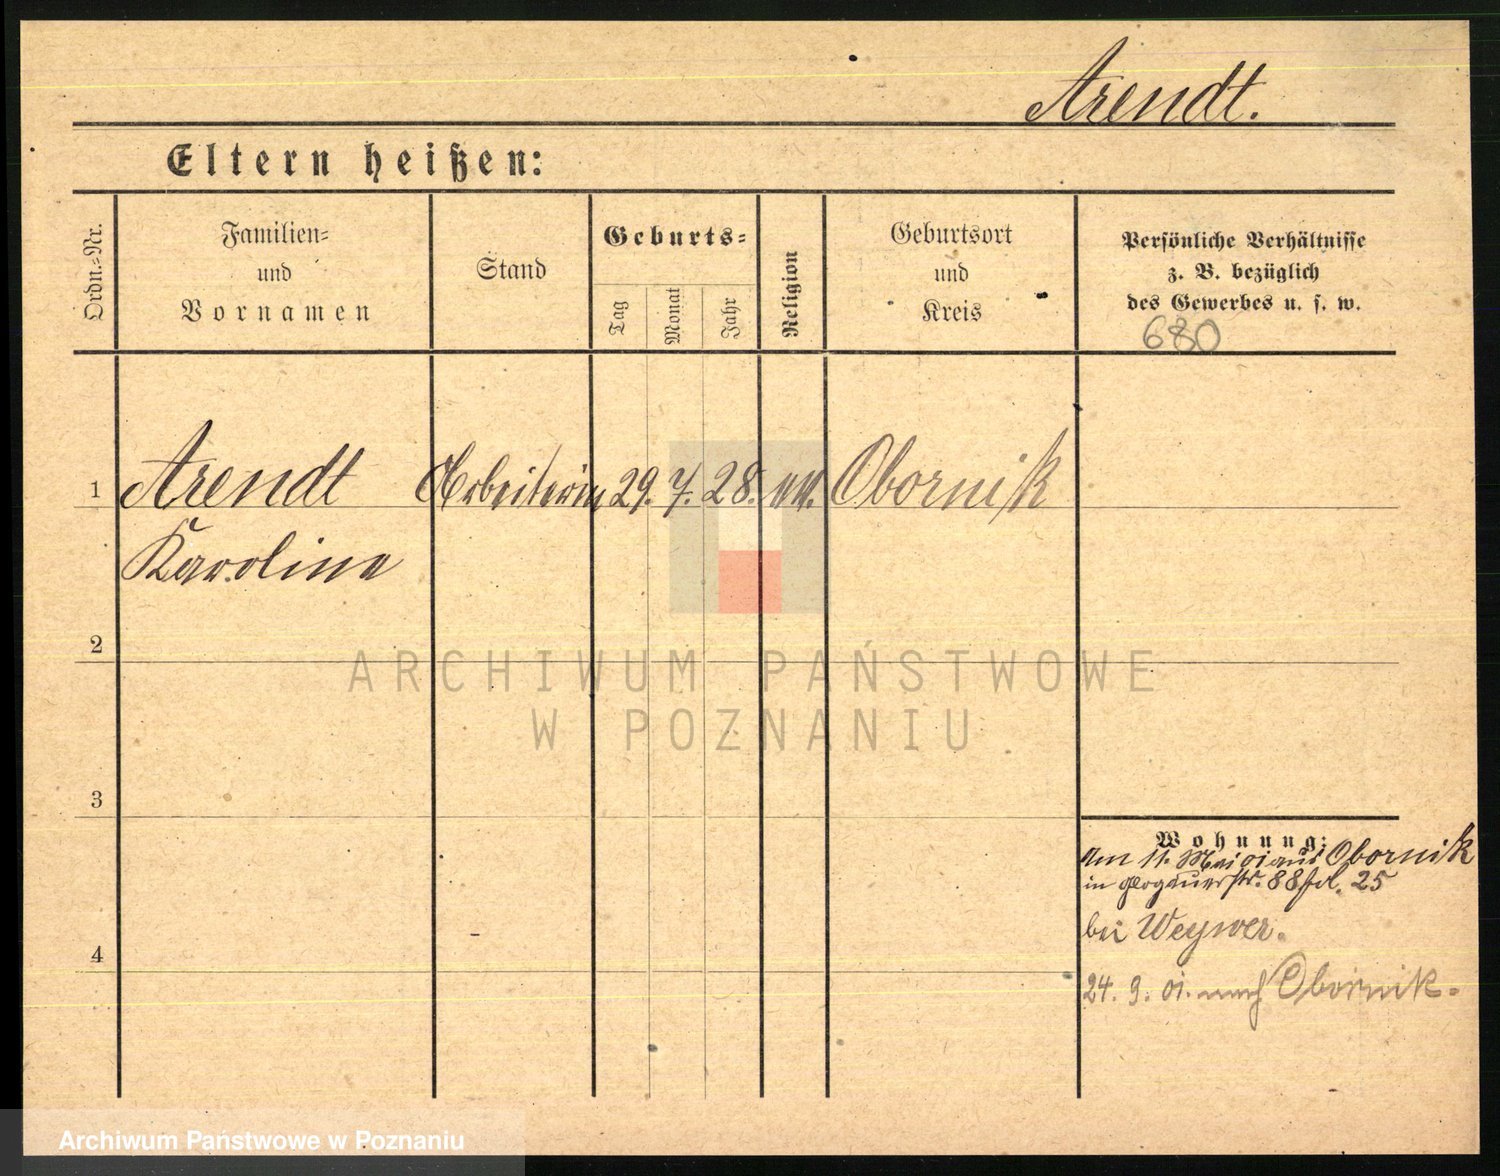 Arendt.
Eltern heißen:
Ordn.-Nr.
Familien-
und
Vornamen
Stand
Geburts-
Tag
Monat
Jahr
Religion
Geburtsort
und
Kreis
Persönliche Verhältnisse
z. B. bezüglich
des Gewerbes u. s. w.
680
1 Arendt Arbeiterin 29. 7. 28. Obornik
Karolina
2
3
4
Wohnung:
Am 11. Mai 01 aus Obornik
in Glogauerstr. 88 25
bei
24. 9. 01. nach Obornik.
ARCHIWUM PAŃSTWOWE
W POZNANIU
Archiwum Państwowe w Poznaniu